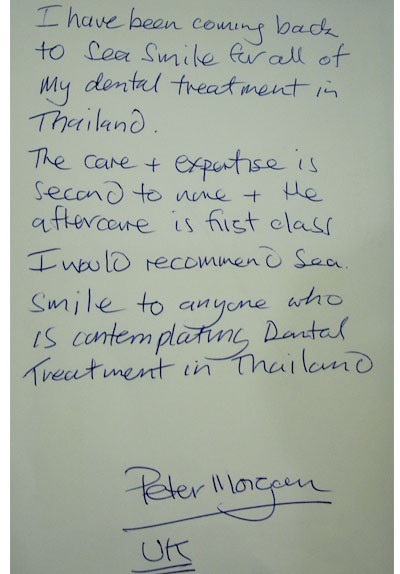 I have been coming back
to Sea Smile for all of
my dental treatment in
Thailand.
The care + expertise is
second to none + the
aftercare is first class
I would recommend Sea.
Smile to anyone who
is contemplating Dental
Treatment in Thailand
Peter Morgan
UK